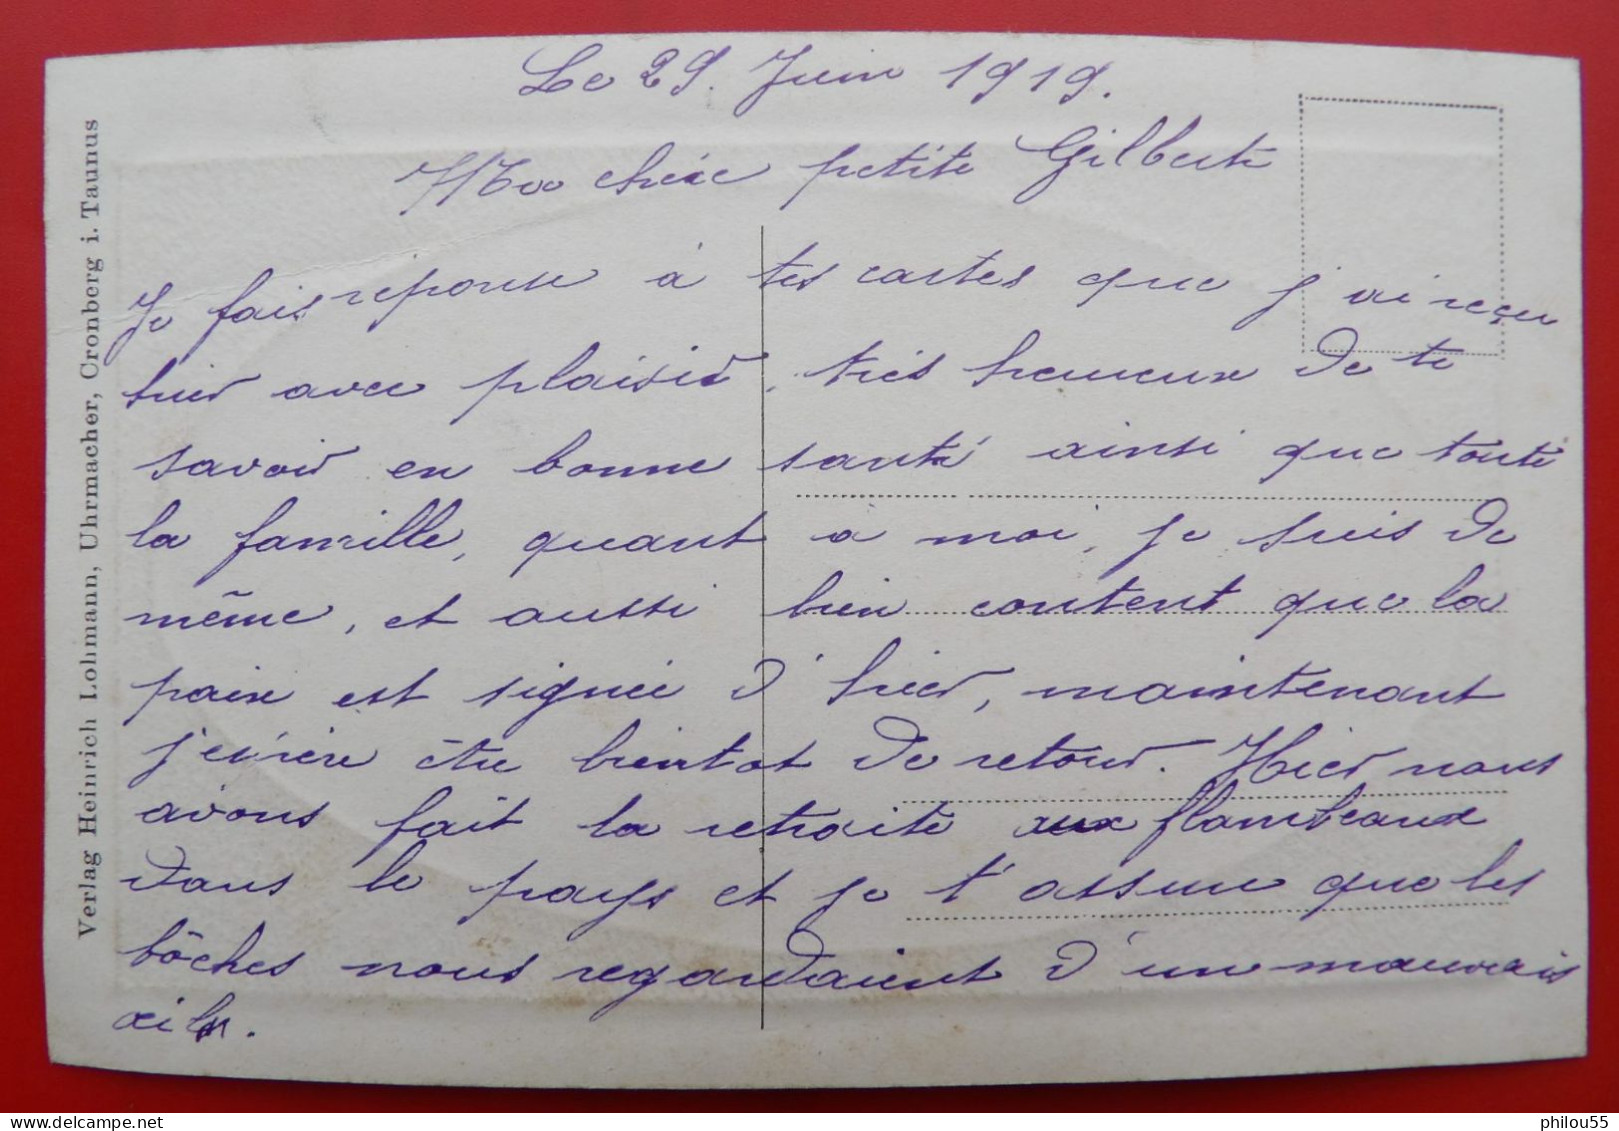 Le 29. Juin 1919.
Ma chère petite Gilberte
Je fais reponse à tes cartes que j'ai reçu
hier avec plaisir, très heureux de te
savoir en bonne santé ainsi que toute
la famille, quant a moi, je suis de
même, et aussi bien content que la
paix est signée d'hier, maintenant
j'espère être bientot de retour. Hier nous
avons fait la retraite aux flambeaux
dans le pays et je t'assure que les
bôches nous regardaient d'un mauvais
œil.
Verlag Heinrich Lohmann, Uhrmacher, Cronberg i. Taunus
philou55